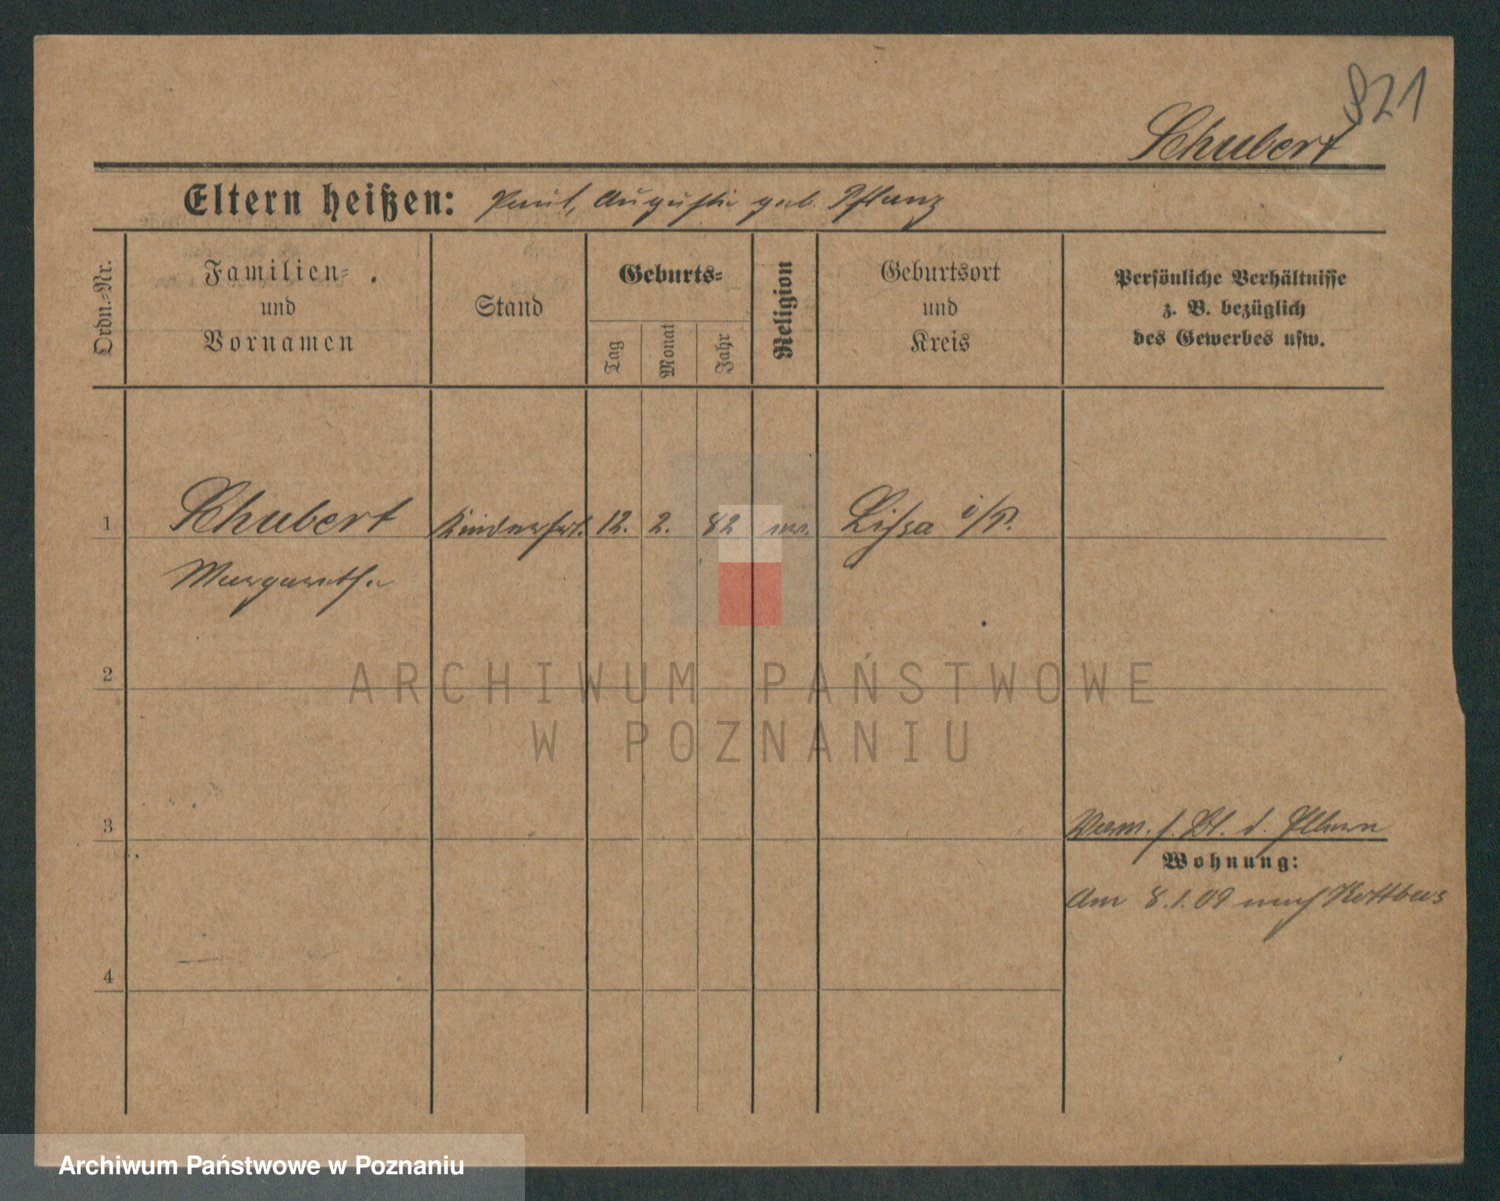 821
Schubert
Eltern heißen: Paul, Auguste geb. Pflanz
Ordn.-Nr.
Familien-
und
Vornamen
Stand
Geburts-
Tag
Monat
Jahr
Religion
Geburtsort
und
Kreis
Persönliche Verhältnisse
z. B. bezüglich
des Gewerbes usw.
1 Schubert 12. 2. 82 Lissa i/P.
Margarethe
2
ARCHIWUM PAŃSTWOWE
W POZNANIU
3
Verm. s. Bl. d. Eltern
Wohnung:
Am 8.1.09 nach Kottbus
4
Archiwum Państwowe w Poznaniu